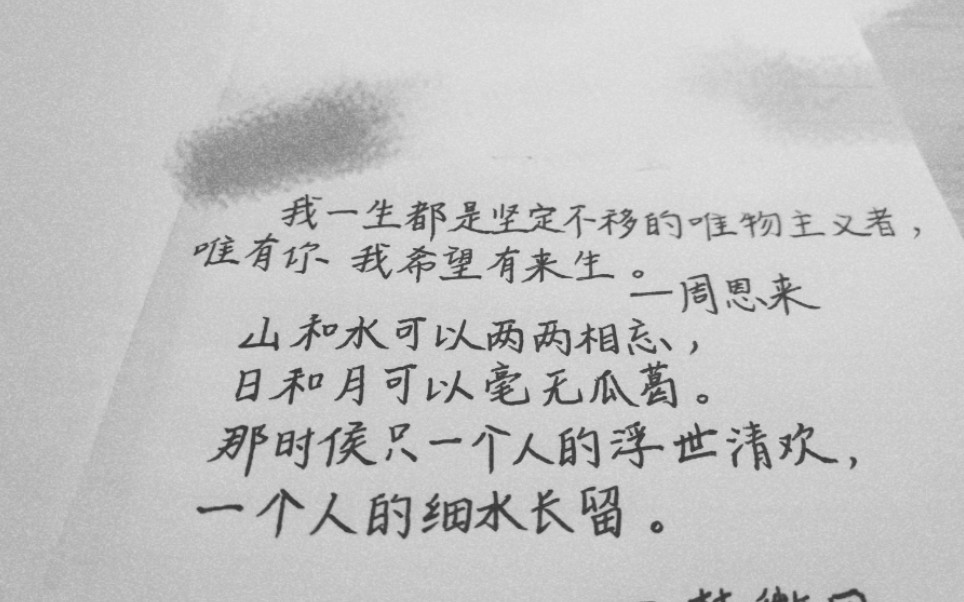 我一生都是坚定不移的唯物主义者，
唯有你、我希望有来生。
—周恩来
山和水可以两两相忘，
日和月可以毫无瓜葛。
那时侯只一个人的浮世清欢，
一个人的细水长留。